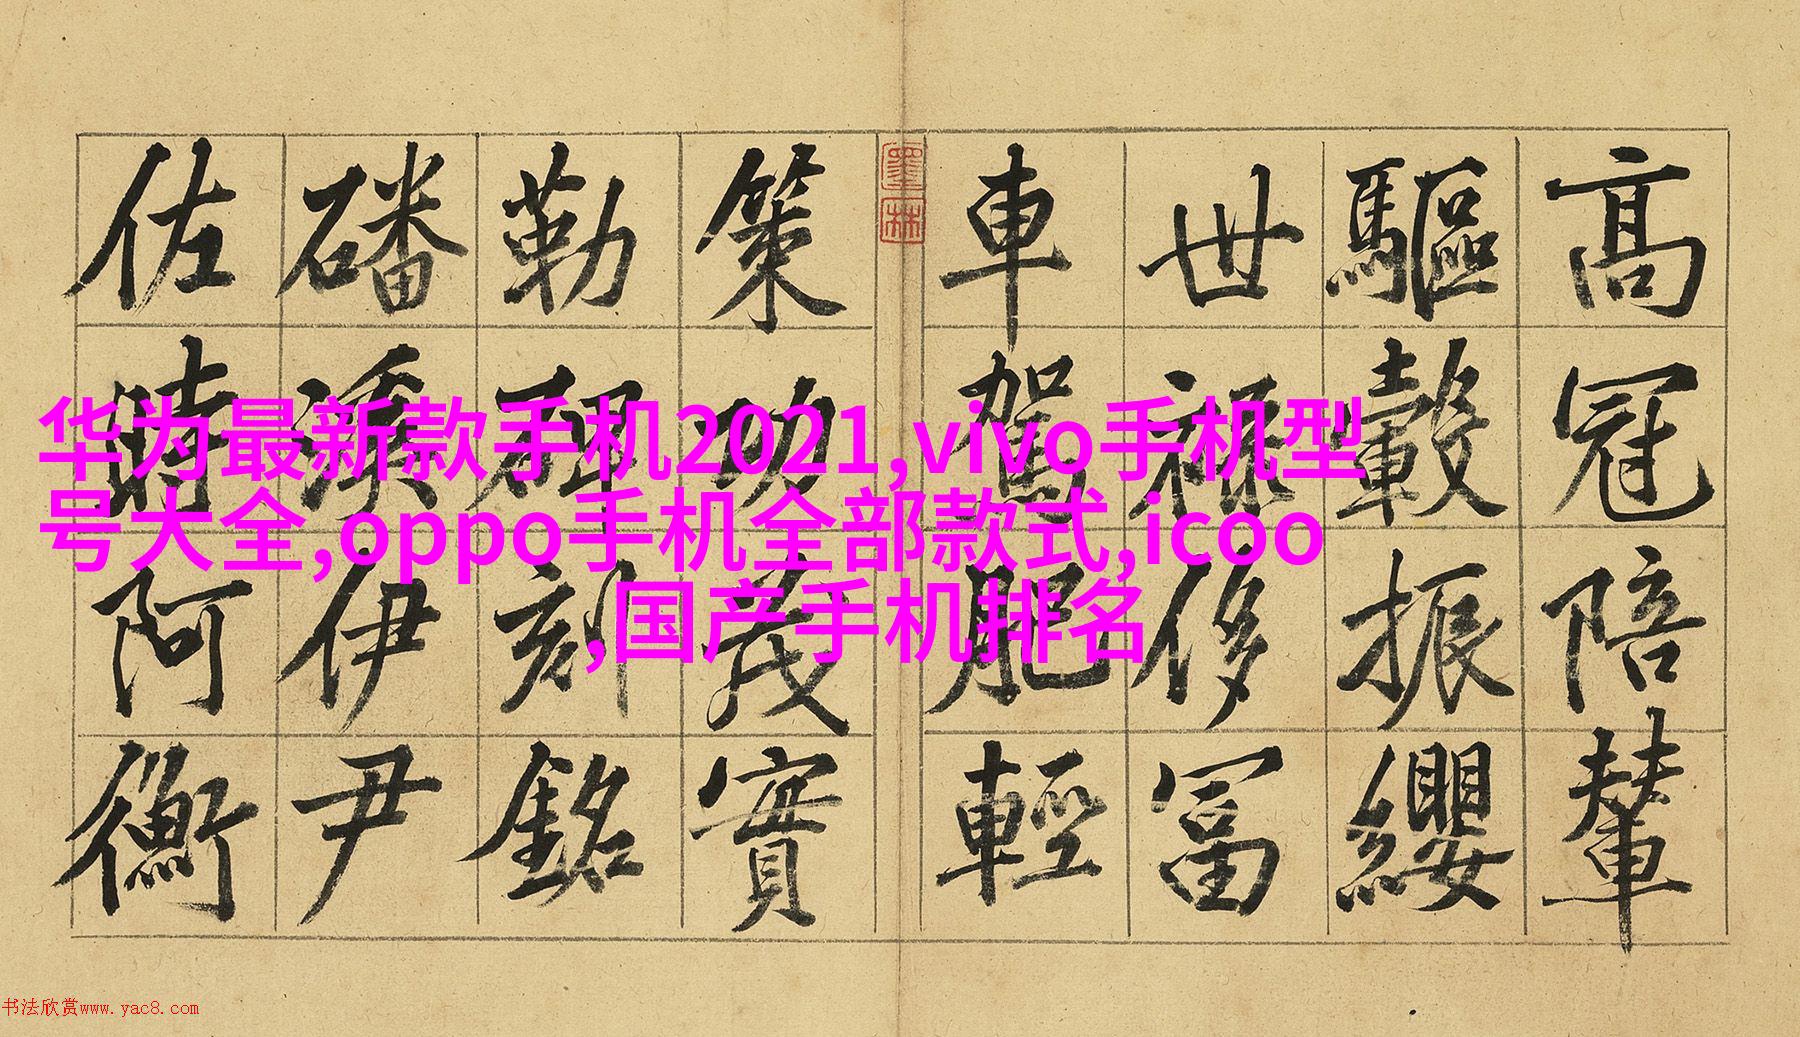 高冠陪輦
驅轂振纓
世祿侈冨
車駕肥輕
策功茂實
勒碑刻銘
磻溪伊尹
佐時阿衡
墨林
华为最新款手机2021,vivo手机型
号大全,oppo手机全部款式,icoo
,国产手机排名
书法欣赏www.yac8.com